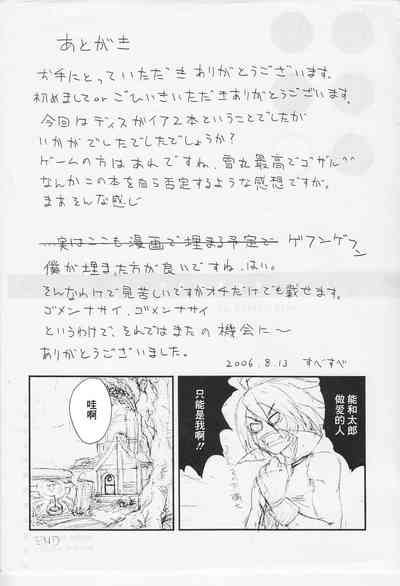 あとがき
お手にとっていただきありがとうございます。
初めましてorごひいきいただきありがとうございます。
今回はディスガイア2本ということでしたが
いかがでしたでしたでしょうか?
ゲームの方はあれですね、雪丸最高でゴザル^^
なんかこの本を自ら否定するような感想ですが。
まあそんな感じ
…実はここも漫画で埋まる予定で ゲフンゲフン
僕が埋まった方が良いですね、はい。
そんなわけで見苦しいですがオチだけでも載せます。
ゴメンナサイ、ゴメンナサイ
というわけで、それではまたの機会に〜
ありがとうございました。
2006.8.13 すべすべ
能和太郎
做爱的人
只能是我啊!!
哇啊
END